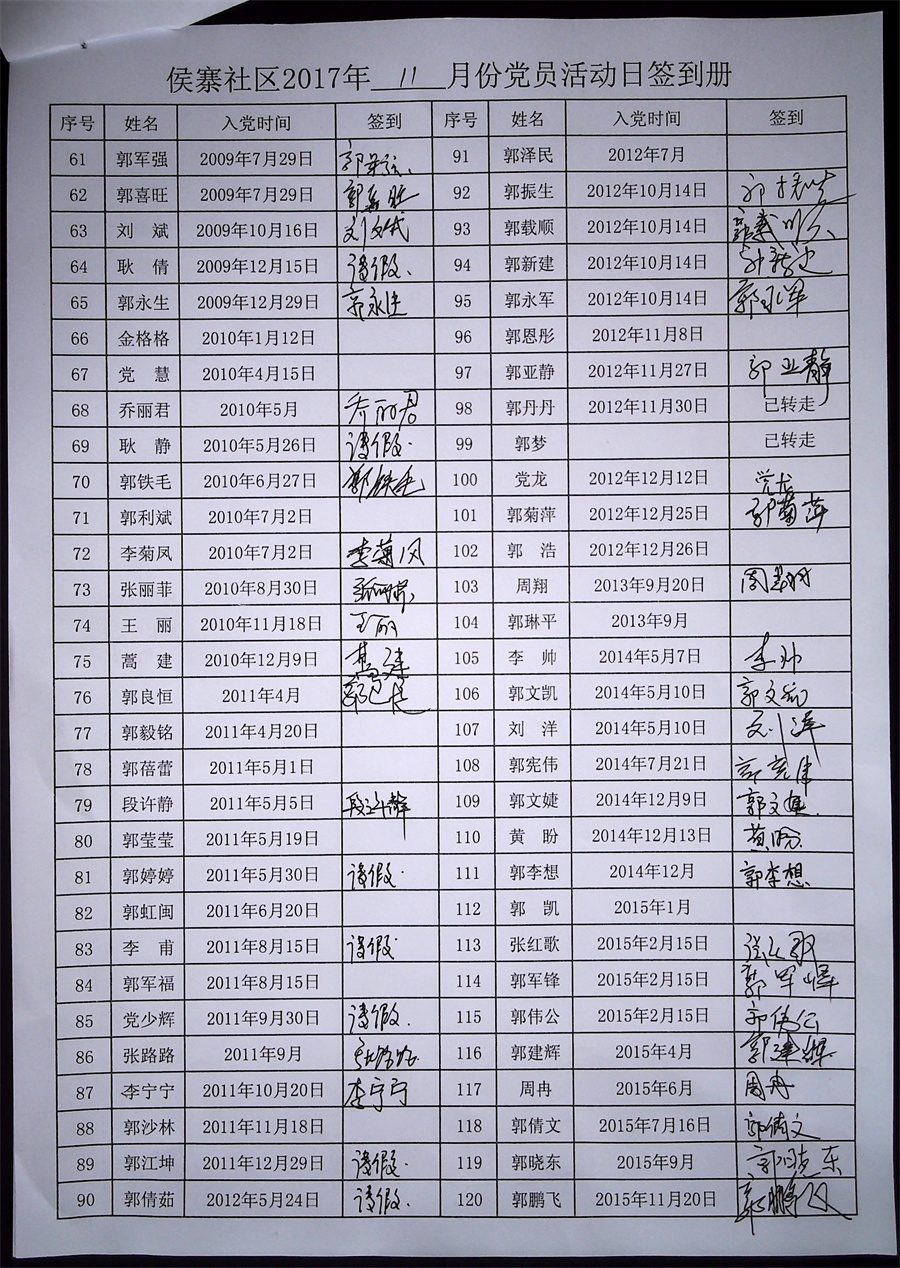 侯寨社区2017年 11 月份党员活动日签到册
序号 姓名 入党时间 签到 序号 姓名 入党时间 签到
61 郭军强 2009年7月29日 郭军强 91 郭泽民 2012年7月
62 郭喜旺 2009年7月29日 郭喜旺 92 郭振生 2012年10月14日 郭振生
63 刘 斌 2009年10月16日 刘斌 93 郭载顺 2012年10月14日 郭载顺
64 耿 倩 2009年12月15日 请假. 94 郭新建 2012年10月14日 郭新建
65 郭永生 2009年12月29日 郭永生 95 郭永军 2012年10月14日 郭永军
66 金格格 2010年1月12日 96 郭恩彤 2012年11月8日
67 党 慧 2010年4月15日 97 郭亚静 2012年11月27日 郭亚静
68 乔丽君 2010年5月 乔丽君 98 郭丹丹 2012年11月30日 已转走
69 耿 静 2010年5月26日 请假. 99 郭梦 已转走
70 郭铁毛 2010年6月27日 郭铁毛 100 党龙 2012年12月12日 党龙
71 郭利斌 2010年7月2日 101 郭菊萍 2012年12月25日 郭菊萍
72 李菊凤 2010年7月2日 李菊凤 102 郭 浩 2012年12月26日
73 张丽菲 2010年8月30日 张丽菲 103 周翔 2013年9月20日 周翔
74 王 丽 2010年11月18日 王丽 104 郭琳平 2013年9月
75 蒿 建 2010年12月9日 蒿建 105 李 帅 2014年5月7日 李帅
76 郭良恒 2011年4月 106 郭文凯 2014年5月10日 郭文凯
77 郭毅铭 2011年4月20日 107 刘 洋 2014年5月10日 刘洋
78 郭蓓蕾 2011年5月1日 108 郭宪伟 2014年7月21日 郭宪伟
79 段许静 2011年5月5日 段许静 109 郭文婕 2014年12月9日 郭文婕
80 郭莹莹 2011年5月19日 110 黄 盼 2014年12月13日 黄盼
81 郭婷婷 2011年5月30日 请假. 111 郭李想 2014年12月 郭李想
82 郭虹闽 2011年6月20日 112 郭 凯 2015年1月
83 李 甫 2011年8月15日 请假. 113 张红歌 2015年2月15日 张红歌
84 郭军福 2011年8月15日 114 郭军锋 2015年2月15日 郭军锋
85 党少辉 2011年9月30日 请假. 115 郭伟公 2015年2月15日 郭伟公
86 张路路 2011年9月 张路路 116 郭建辉 2015年4月 郭建辉
87 李宁宁 2011年10月20日 李宁宁 117 周冉 2015年6月 周冉
88 郭沙林 2011年11月18日 118 郭倩文 2015年7月16日 郭倩文
89 郭江坤 2011年12月29日 请假. 119 郭晓东 2015年9月 郭晓东
90 郭倩茹 2012年5月24日 请假. 120 郭鹏飞 2015年11月20日 郭鹏飞